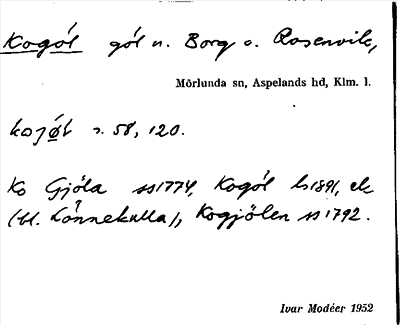 Kogöl göl n. Borg o. Rosenvik,
Mörlunda sn, Aspelands hd, Klm. l.
kojøl s. 58, 120.
Ko Gjöla ss1774, Kogöl h1891, ek
(bl. Lönnekulla), Kogjölen ss1792.
Ivar Modéer 1952